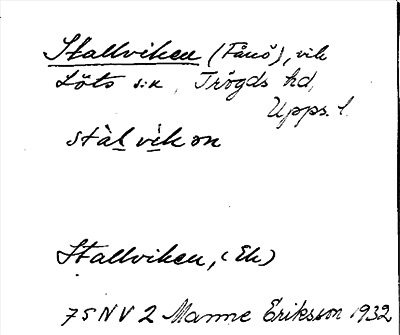 Stallviken (Fånö), vik
Löts s:n, Trögds hd,
Upps. l.
stàl vìk on
Stallviken, (Ek)
75 NV 2 Manne Eriksson 1932